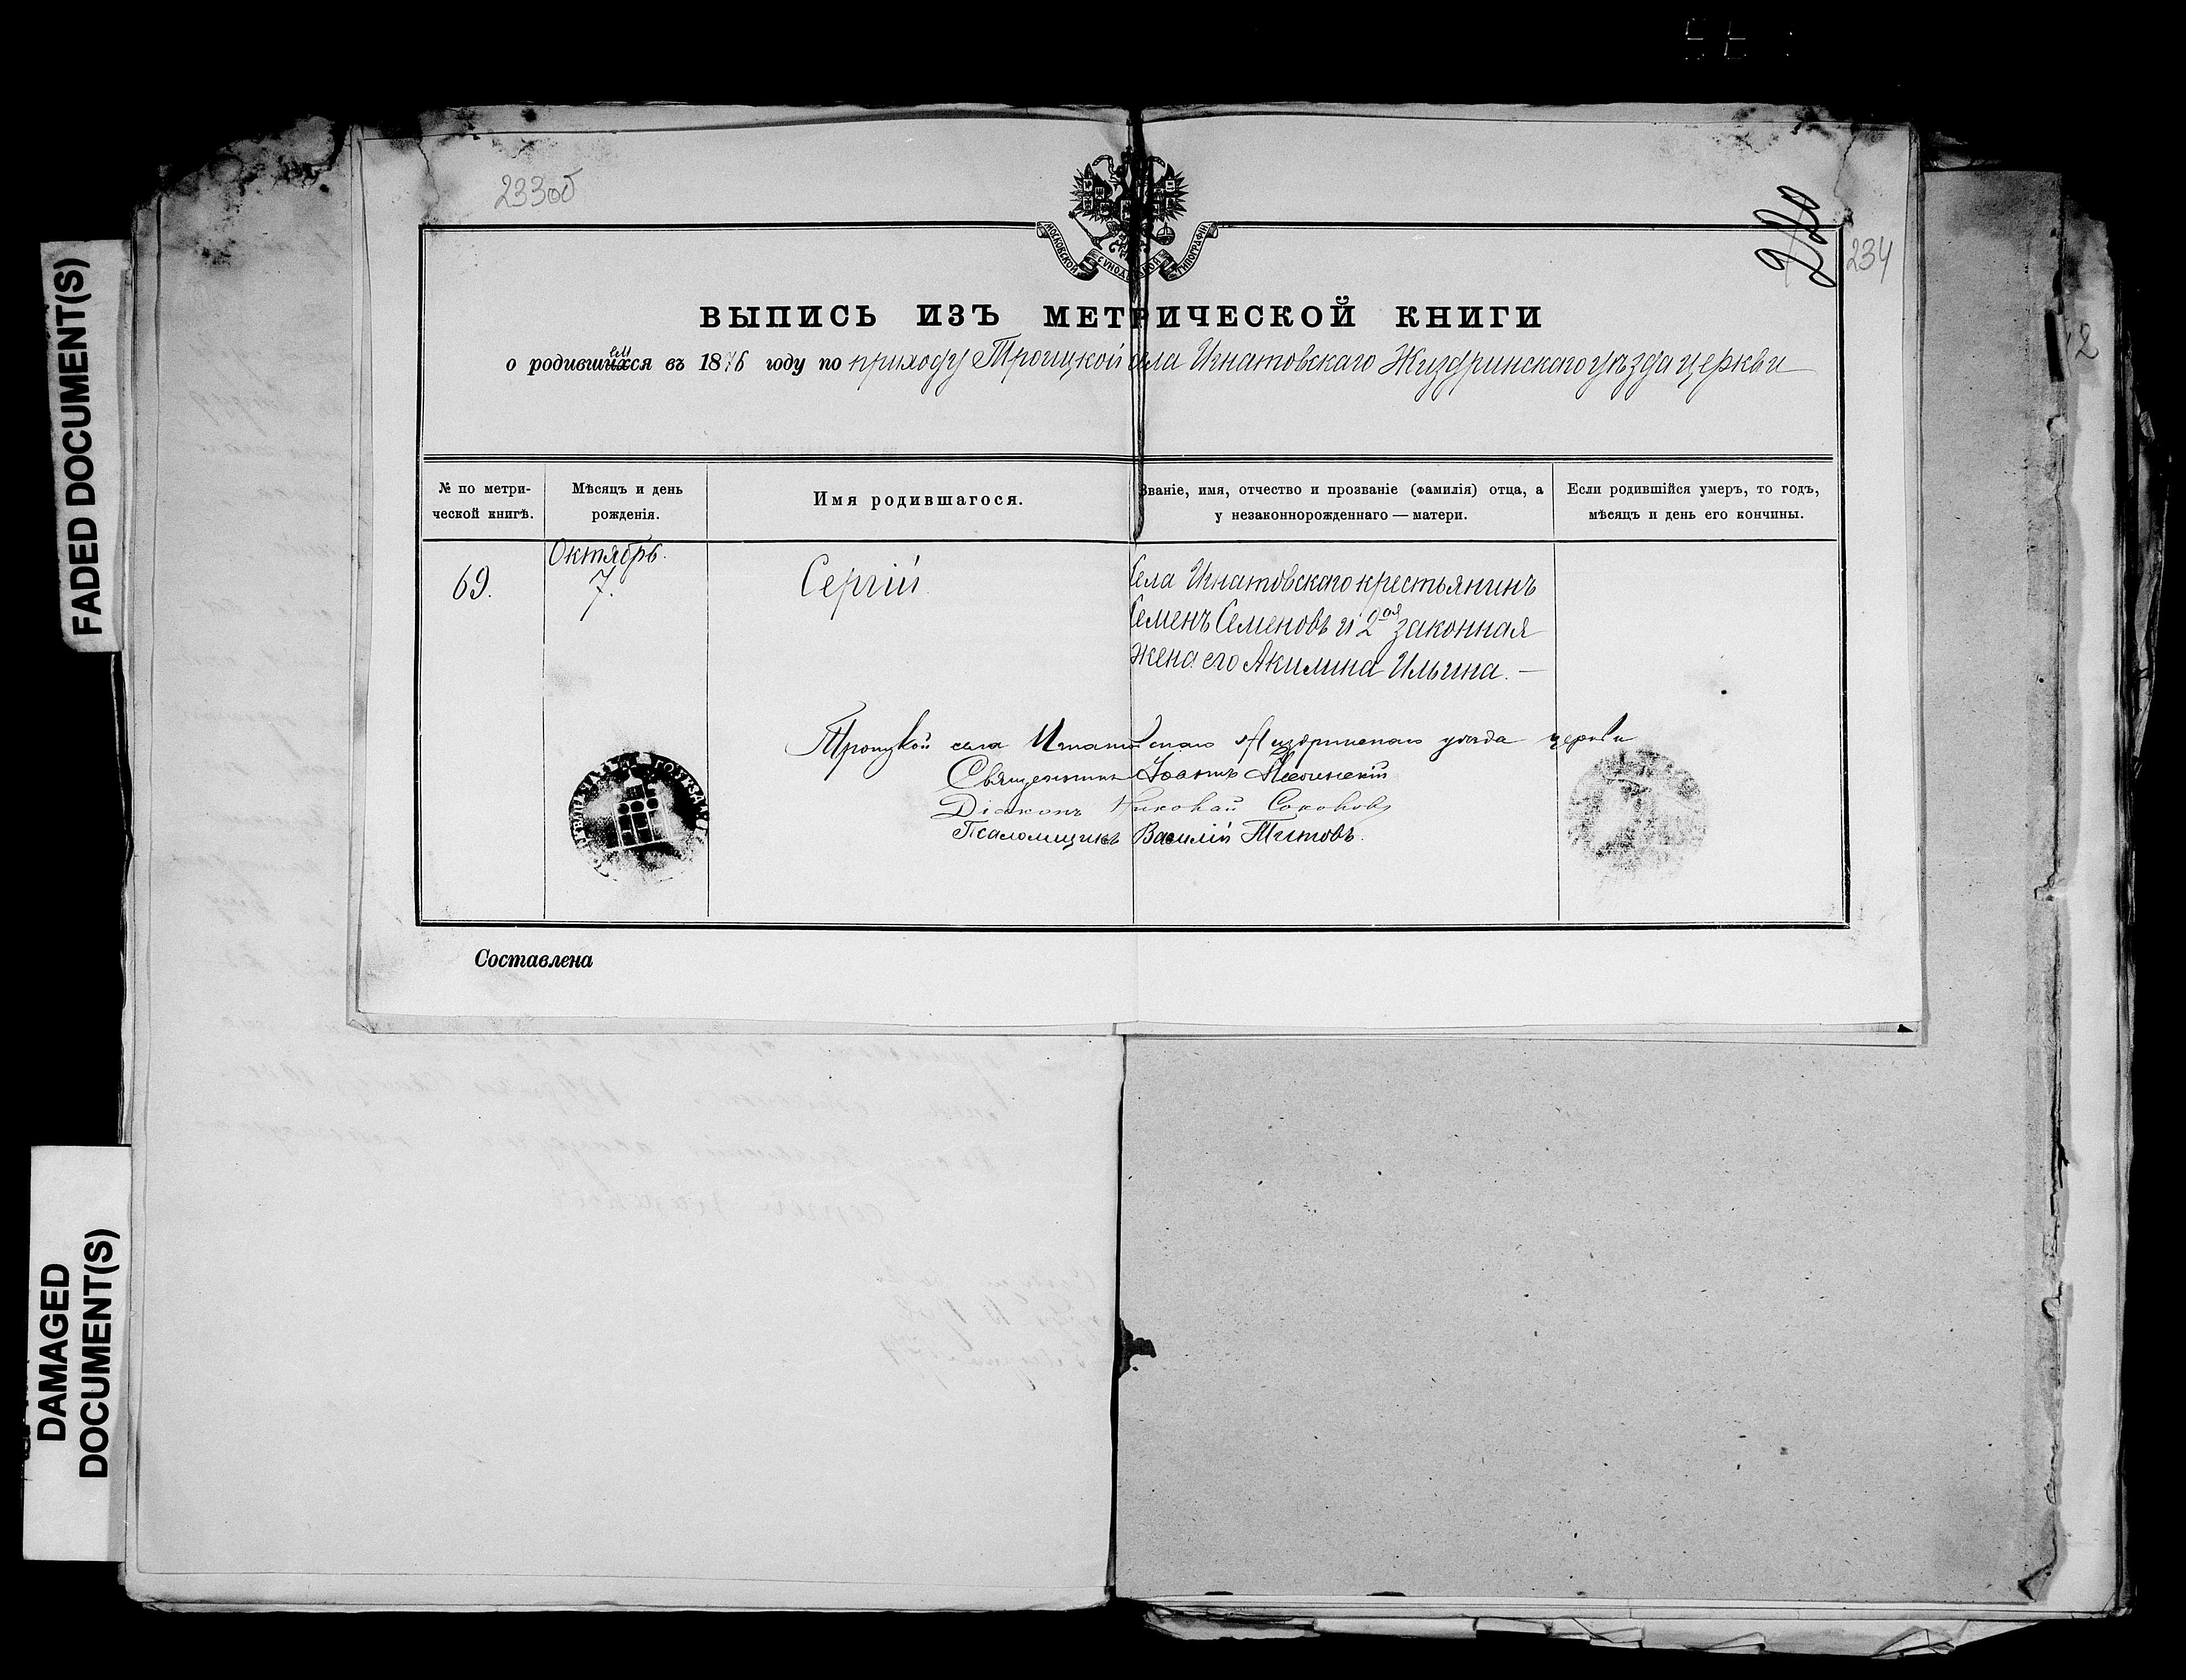 23300
220
234
МОСКОВСКОЙ СѴНОДАЛЬНОЙ ТИПОГРАФІИ
ВЫПИСЬ ИЗЪ МЕТРИЧЕСКОЙ КНИГИ
о родившемся въ 1876 году по приходу Троицкой села Игнатовскаго Жиздринскаго уѣзда церкви
№ по метри-
ческой книгѣ.
Мѣсяцъ и день
рожденія.
Имя родившагося.
Званіе, имя, отчество и прозваніе (фамилія) отца, а
у незаконнорожденнаго — матери.
Если родившійся умеръ, то годъ,
мѣсяцъ и день его кончины.
69.
Октябрь.
7.
Сергій
Села Игнатовскаго крестьянинъ
Семенъ Семеновъ и 2ая законная
жена его Акилина Ильина. —
Троицкой села Игнатовскаго Жиздринскаго уѣзда церкви
Священникъ Іоаннъ
Діаконъ Николай Соколовъ
Псаломщикъ Василій Титовъ.
Составлена
FADED DOCUMENT(S)
DAMAGED
DOCUMENT(S)